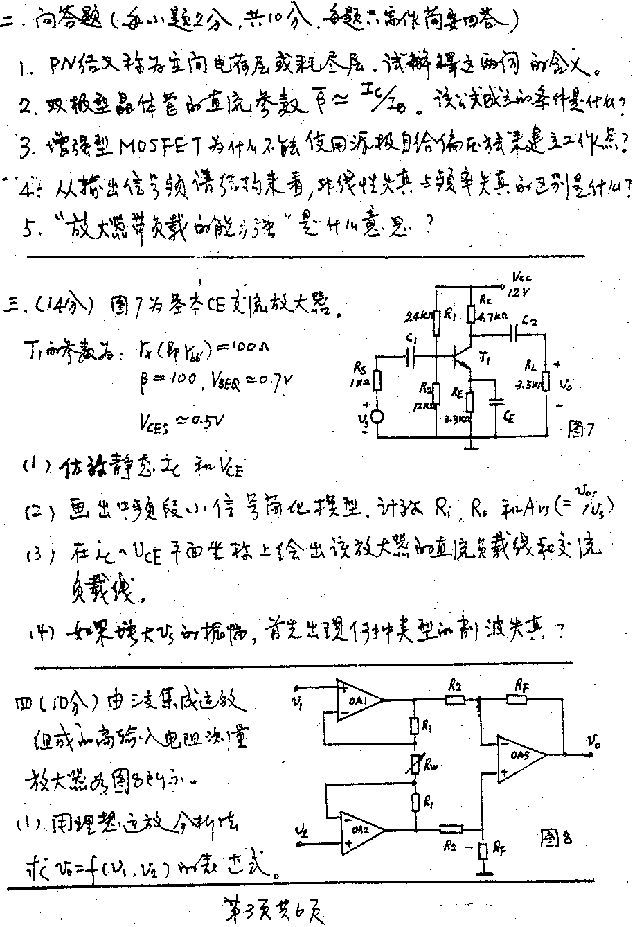 二. 问答题 (每小题2分, 共10分, 每题只需作简要回答)
1. PN结又称为空间电荷层或耗尽层. 试解释这两词的含义。
2. 双极型晶体管的直流参数 β̄ ≈ Ic/IB。该公式成立的条件是什么?
3. 增强型MOSFET为什么不能使用源极自给偏压法来建立工作点?
4. 从输出信号频谱结构来看, 非线性失真与频率失真的区别是什么?
5. "放大器带负载的能力强"是什么意思?
三. (14分) 图7为基本CE交流放大器。
T1的参数为: rx(即rbb')=100Ω
β=100, VBEQ≈0.7V
VCES≈0.5V
Vcc
12V
24KΩ R1
Rc
4.7KΩ
C1
C2
T1
Rs
1KΩ
R2
12KΩ
RE
3.3KΩ
CE
RL
3.3KΩ
+
Vo
-
+
Vs
-
图7
(1) 估算静态Ic和VCE
(2) 画出中频段小信号简化模型. 计算Ri、Ro和Avs(=Vo/Vs)
(3) 在ic~VCE平面坐标上绘出该放大器的直流负载线和交流
负载线。
(4) 如果增大Vs的振幅, 首先出现何种类型的削波失真?
四 (10分) 由三支集成运放
组成的高输入电阻测量
放大器如图8所示。
(1) 用理想运放分析法
求Vo=f(V1,V2)的表达式。
V1
+
-
OA1
R2
RF
R1
Rw
R1
-
+
OA3
Vo
V2
-
+
OA2
R2
RF
图8
第3页共6页